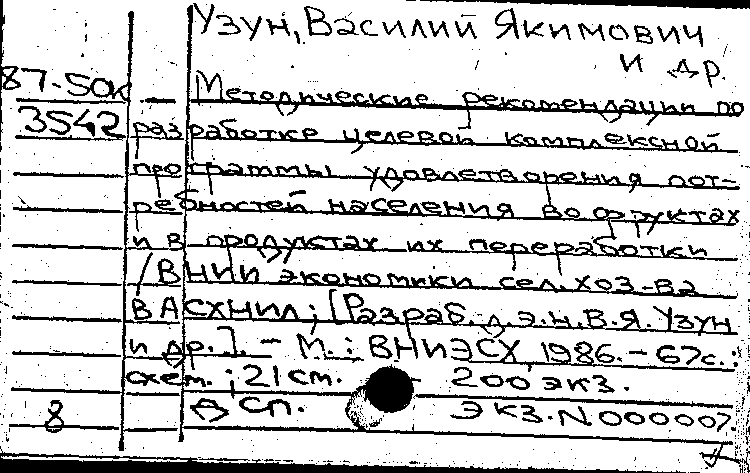 Узун, Василий Якимович
и др.
87-50к — Методические рекомендации по
3542 разработке целевой комплексной
программы удовлетворения пот-
ребностей населения во фруктах
и в продуктах их переработки
/ВНИИ экономики сел. хоз-ва
ВАСХНИЛ; [Разраб. д.э.н. В.Я. Узун
и др.]. - М.: ВНИЭСХ, 1986. - 67с.:
схем.; 21 см. - 200 экз.
8 Д сп. Экз. N 000007.